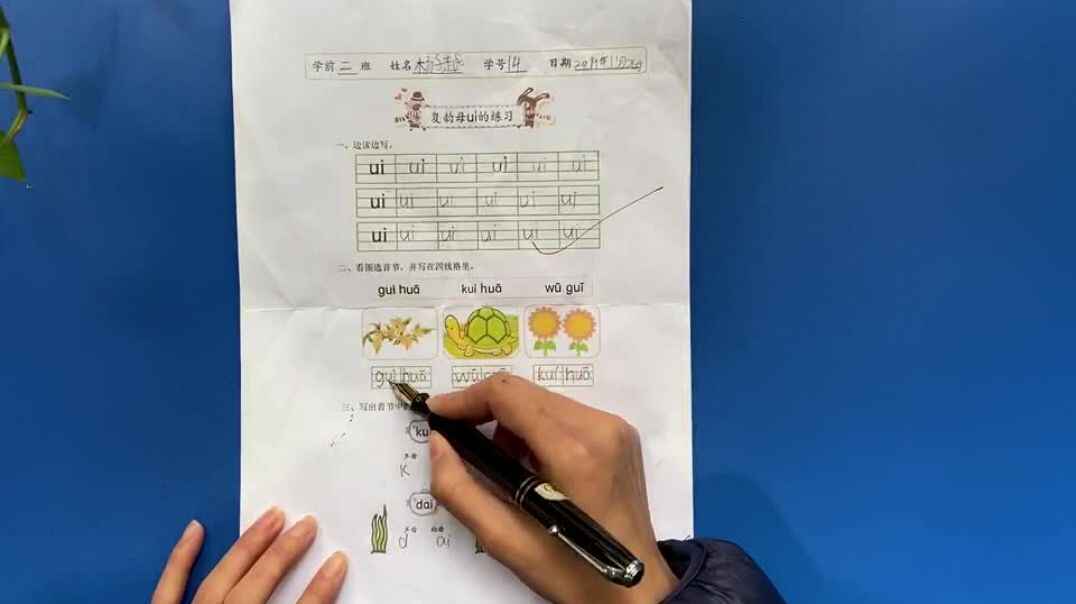 学前 二 班 姓名 学号 14 日期
复韵母ui的练习
一、边读边写。
ui ui ui ui ui ui
ui ui ui ui ui ui
ui ui ui ui ui ui
二、看图选音节，并写在四线格里。
guì huā kuí huā wū guī
guì huā wū kuí huā
三、写出音节中
ku
声母
k
dai
声母 韵母
d ai